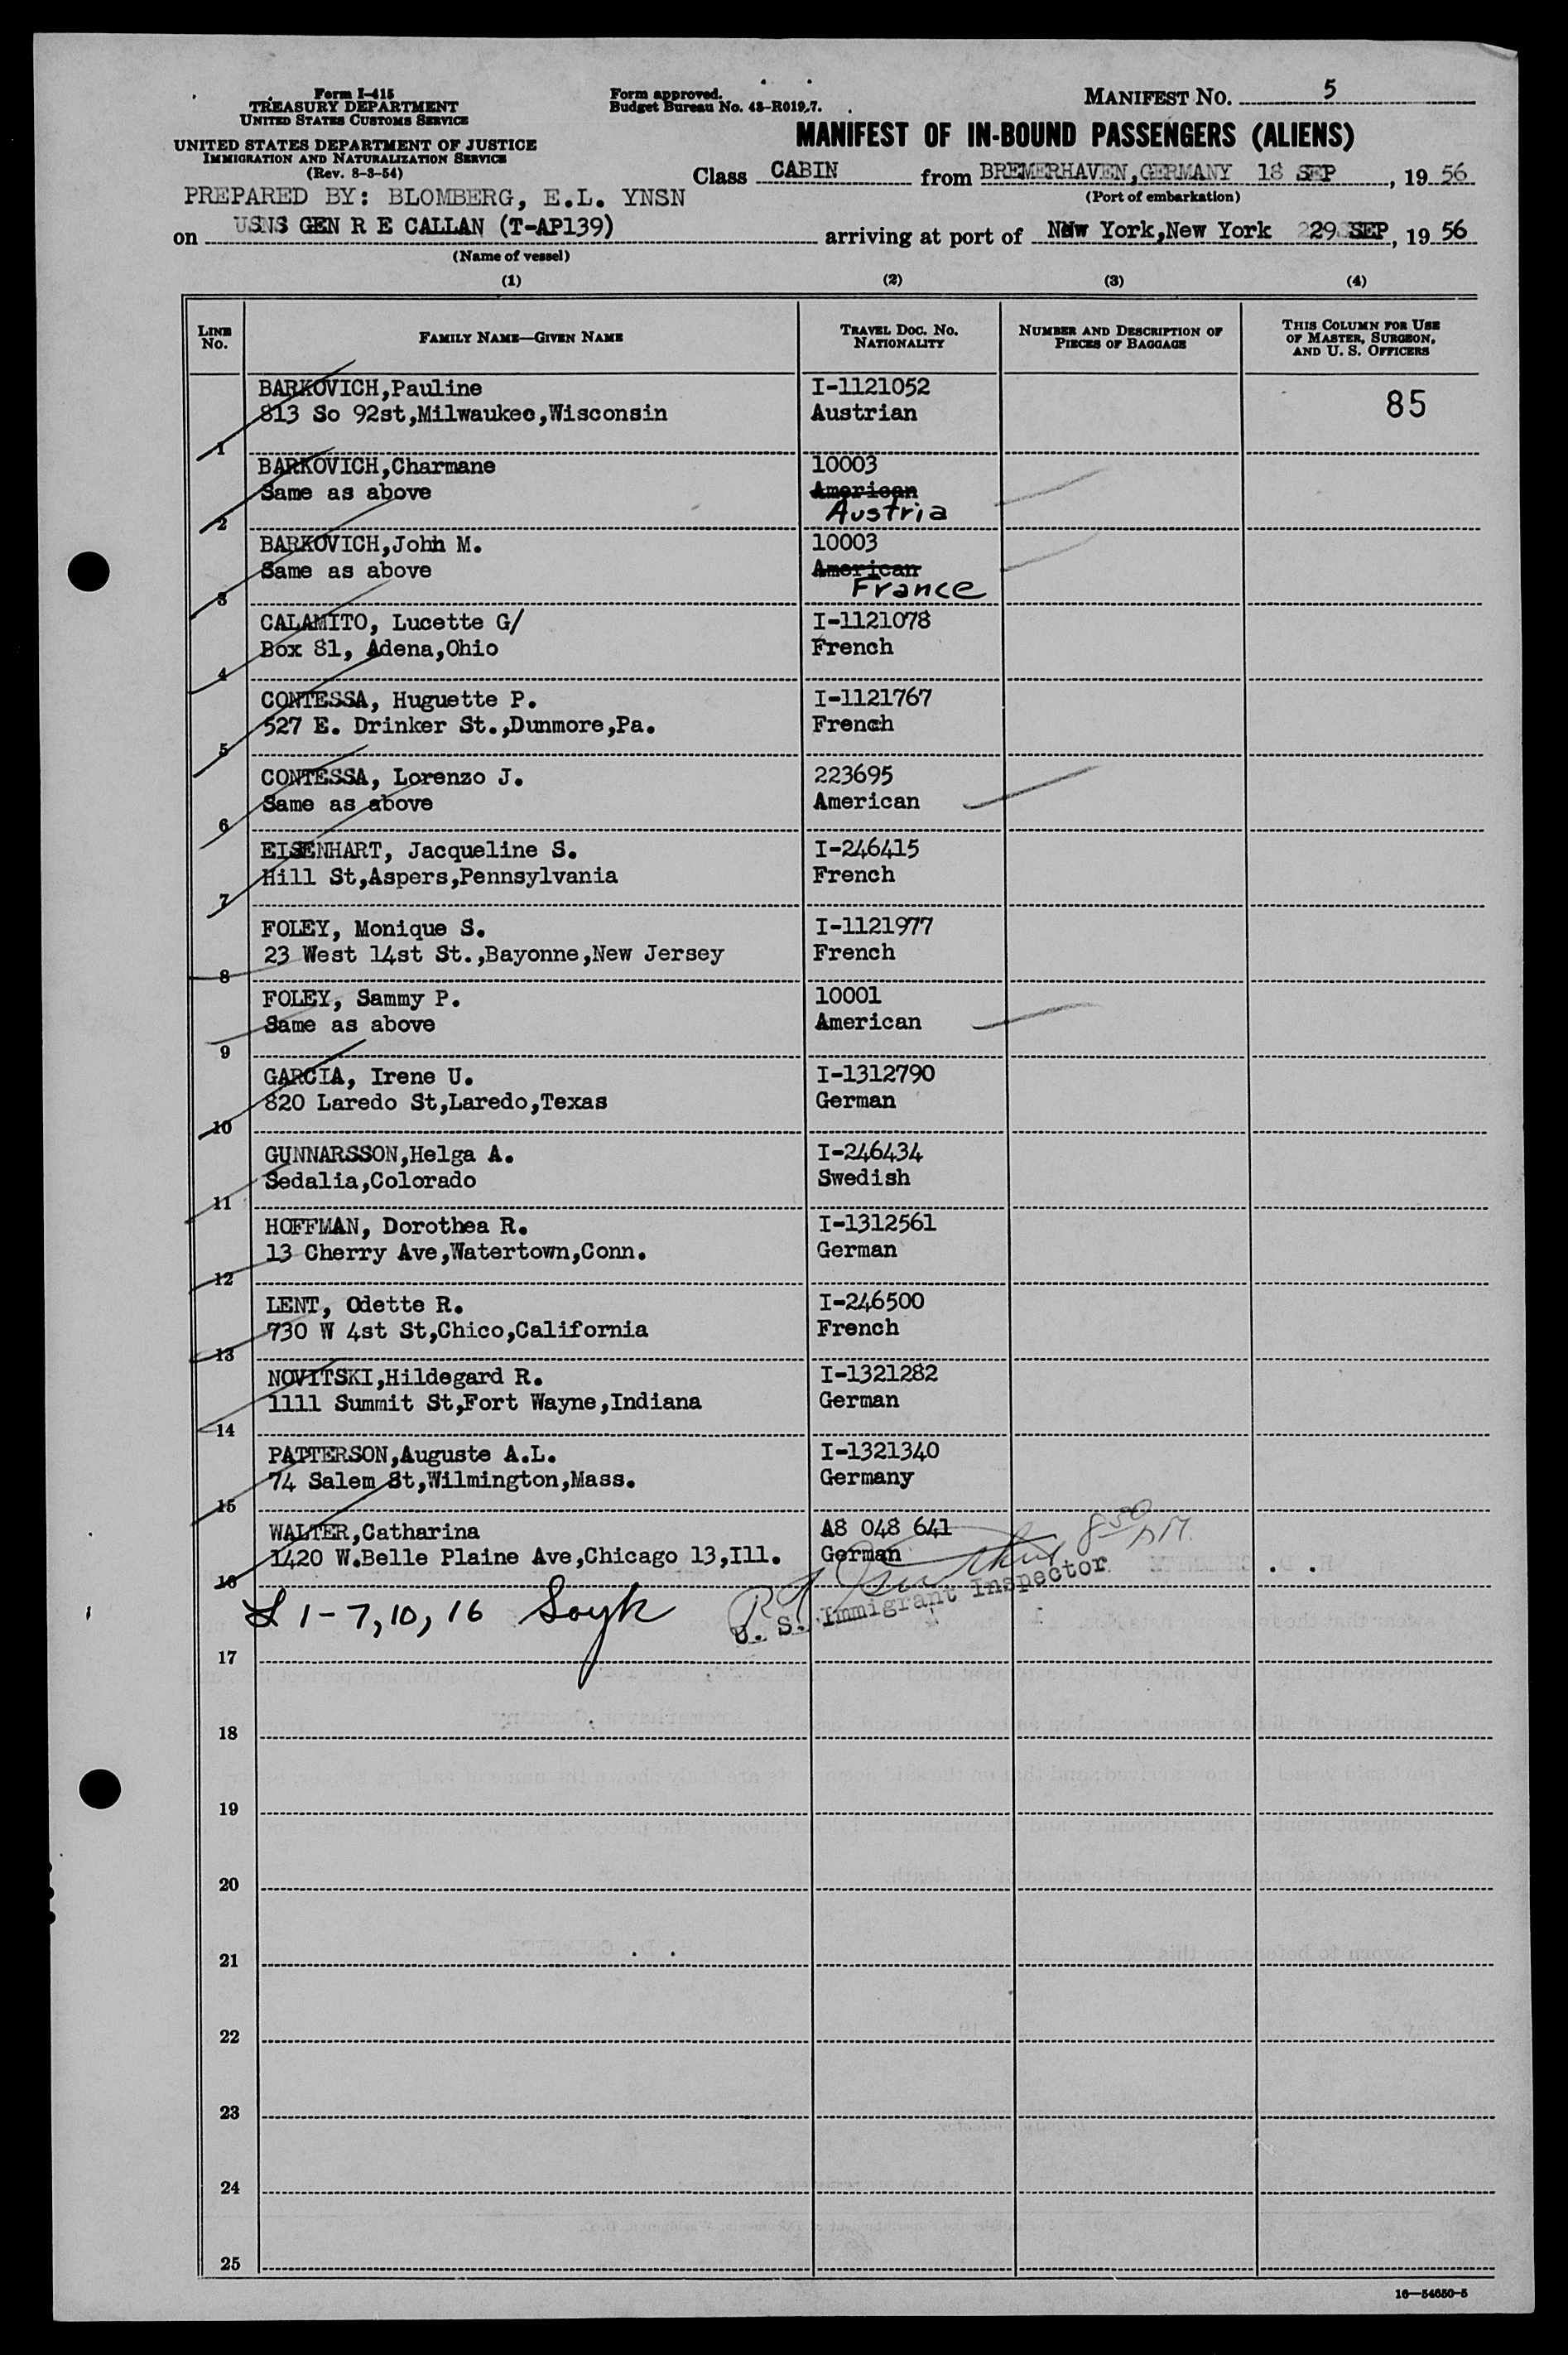 Form I-415
TREASURY DEPARTMENT
UNITED STATES CUSTOMS SERVICE
UNITED STATES DEPARTMENT OF JUSTICE
IMMIGRATION AND NATURALIZATION SERVICE
(Rev. 8-3-54)
Form approved.
Budget Bureau No. 43-R019.7.
MANIFEST NO. 5
MANIFEST OF IN-BOUND PASSENGERS (ALIENS)
Class CABIN from BREMERHAVEN,GERMANY 18 SEP, 19 56
(Port of embarkation)
PREPARED BY: BLOMBERG, E.L. YNSN
on USNS GEN R E CALLAN (T-AP139) arriving at port of New York,New York 29 SEP, 19 56
(Name of vessel)
(1) (2) (3) (4)
LINE No. FAMILY NAME—GIVEN NAME TRAVEL DOC. NO. NATIONALITY NUMBER AND DESCRIPTION OF PIECES OF BAGGAGE THIS COLUMN FOR USE OF MASTER, SURGEON, AND U. S. OFFICERS
BARKOVICH,Pauline I-1121052 85
813 So 92st,Milwaukee,Wisconsin Austrian
1
BARKOVICH,Charmane 10003
Same as above American
2 Austria
BARKOVICH,John M. 10003
Same as above American
3 France
CALAMITO, Lucette G/ I-1121078
Box 81, Adena,Ohio French
4
CONTESSA, Huguette P. I-1121767
527 E. Drinker St.,Dunmore,Pa. French
5
CONTESSA, Lorenzo J. 223695
Same as above American
6
EISENHART, Jacqueline S. I-246415
Hill St,Aspers,Pennsylvania French
7
FOLEY, Monique S. I-1121977
23 West 14st St.,Bayonne,New Jersey French
8
FOLEY, Sammy P. 10001
Same as above American
9
GARCIA, Irene U. I-1312790
820 Laredo St,Laredo,Texas German
10
GUNNARSSON,Helga A. I-246434
Sedalia,Colorado Swedish
11
HOFFMAN, Dorothea R. I-1312561
13 Cherry Ave,Watertown,Conn. German
12
LENT, Odette R. I-246500
730 W 4st St,Chico,California French
13
NOVITSKI,Hildegard R. I-1321282
1111 Summit St,Fort Wayne,Indiana German
14
PATTERSON,Auguste A.L. I-1321340
74 Salem St,Wilmington,Mass. Germany
15
WALTER,Catharina A8 048 641
1420 W.Belle Plaine Ave,Chicago 13,Ill. German
16
1-7, 10, 16
U. S. Immigrant Inspector
8 50 AM.
17
18
19
20
21
22
23
24
25
16—54650-5